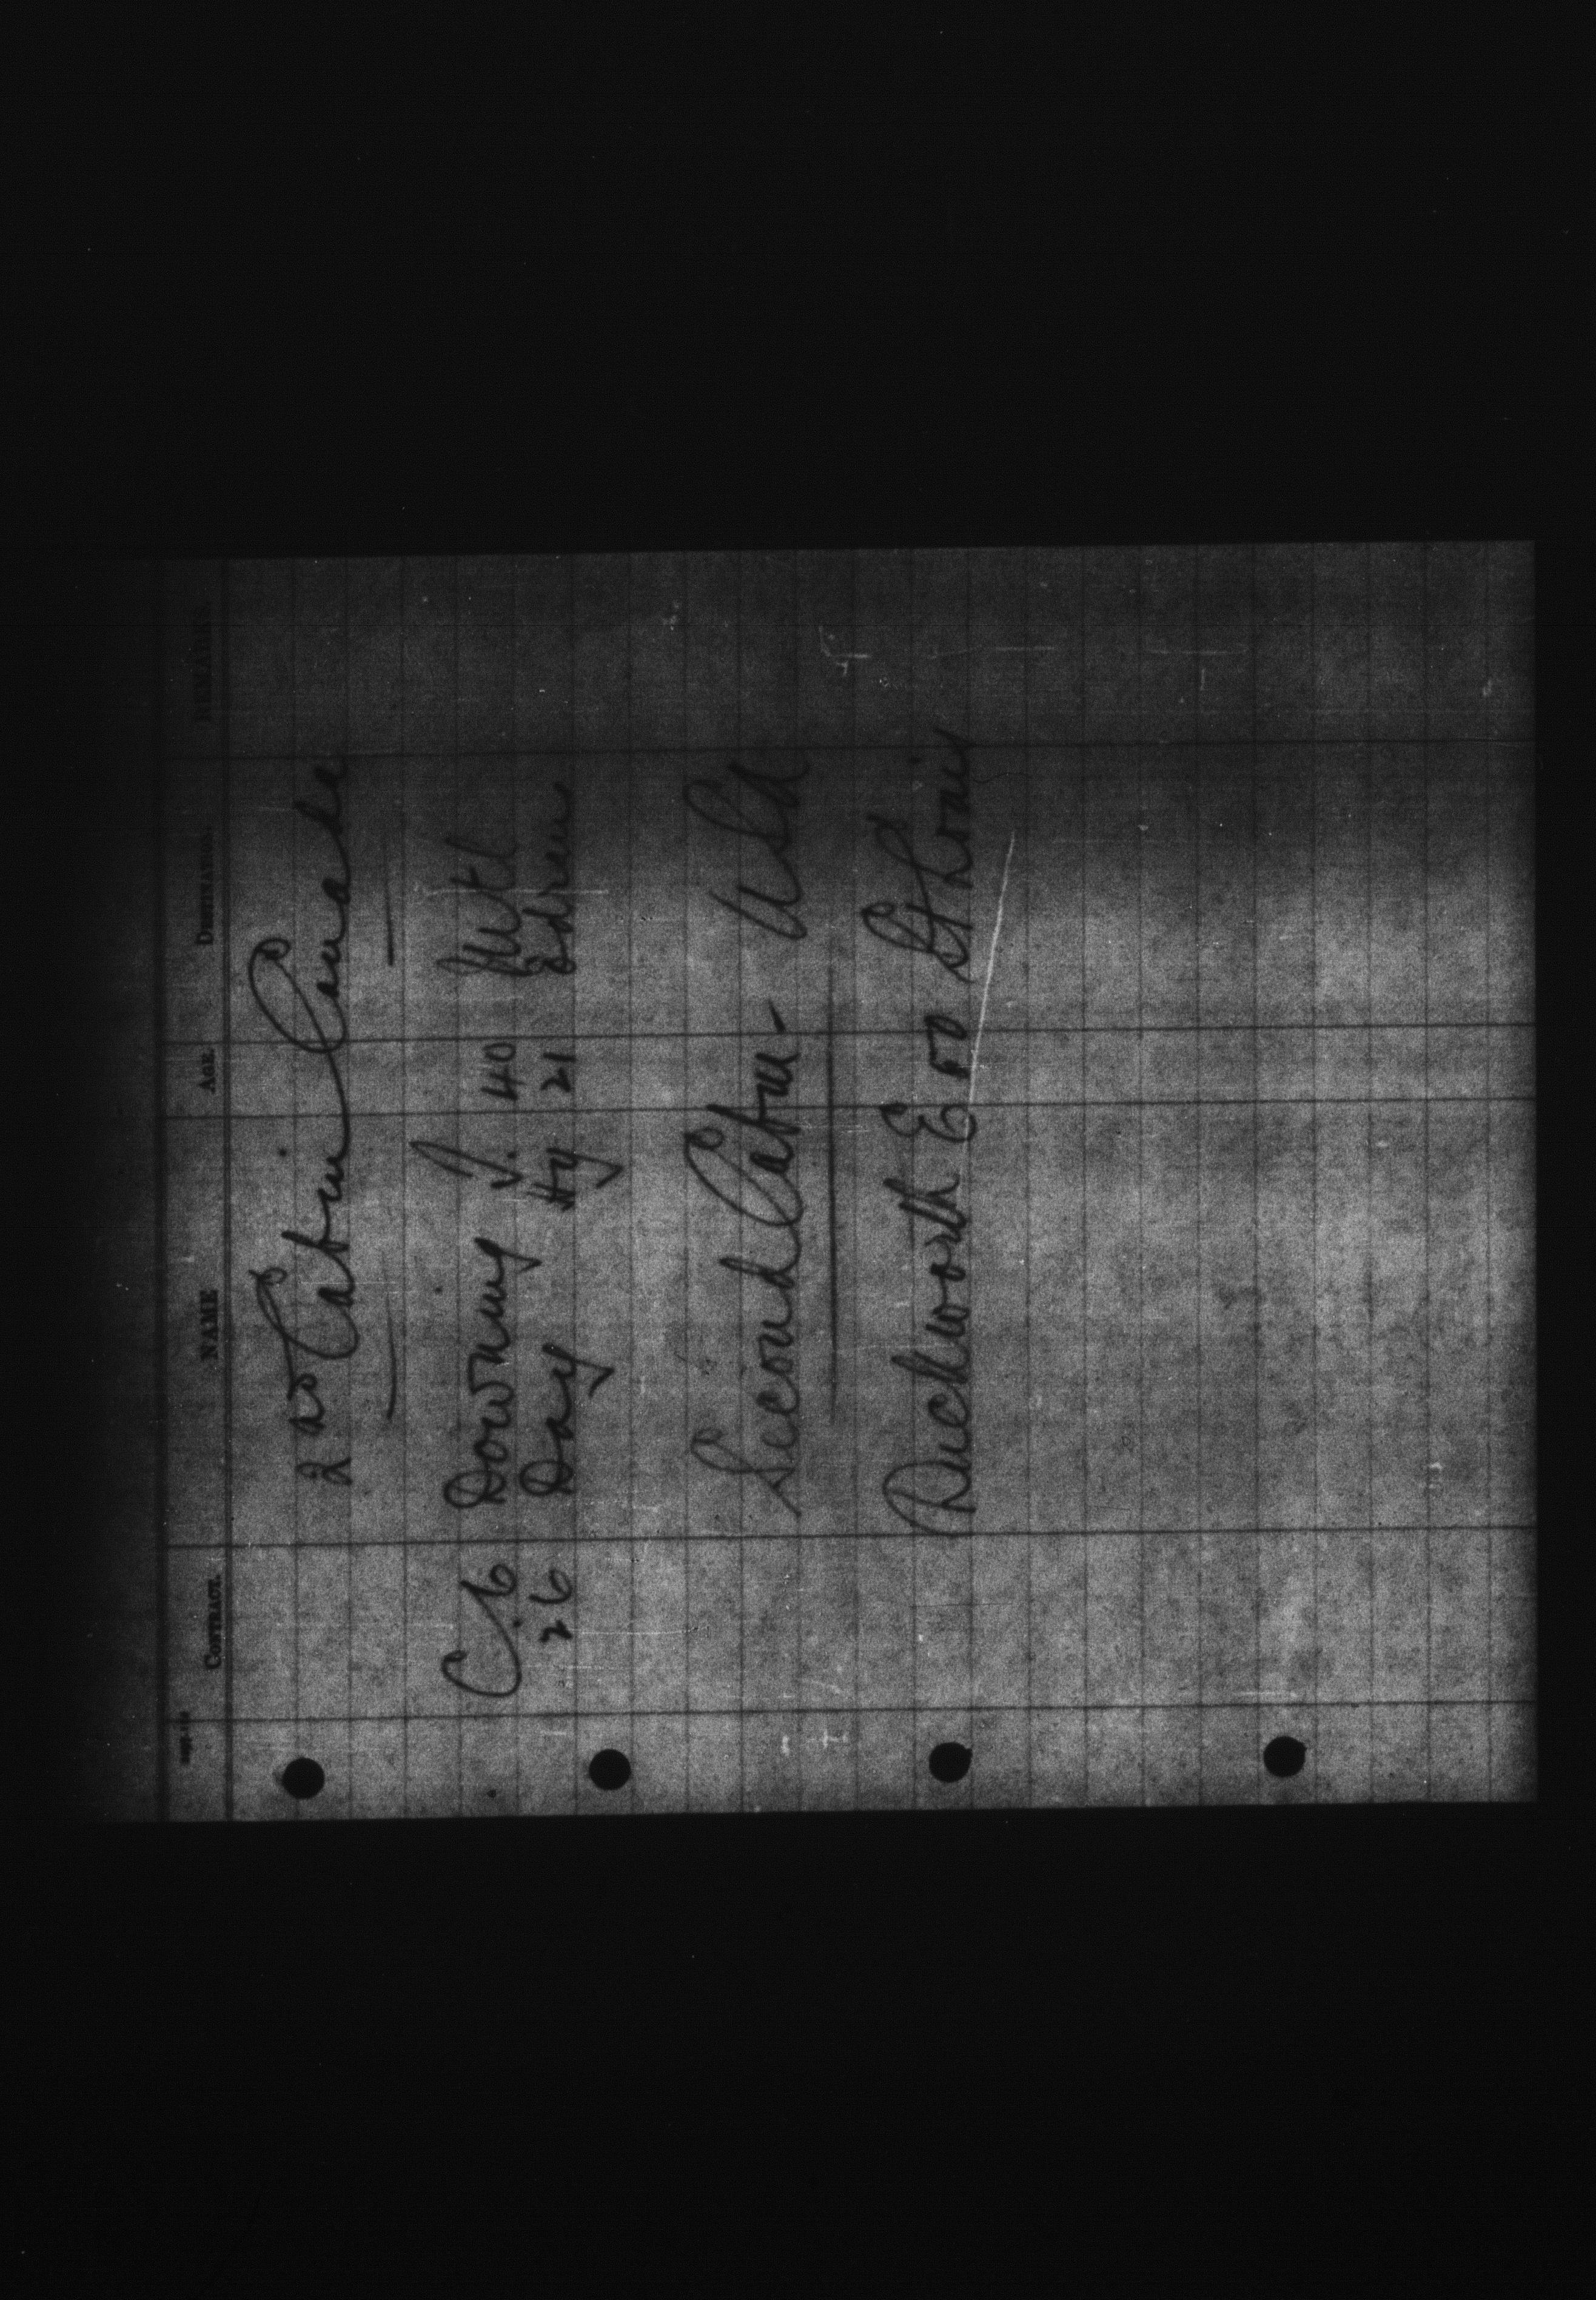 CONTRACT. NAME AGE. DESTINATION. REMARKS
2nd Cabin Canada
C.6 Downing J. 40 Mtl
26 Day Hy 21
Second Cabin - USA
Duckworth E 50 St Louis